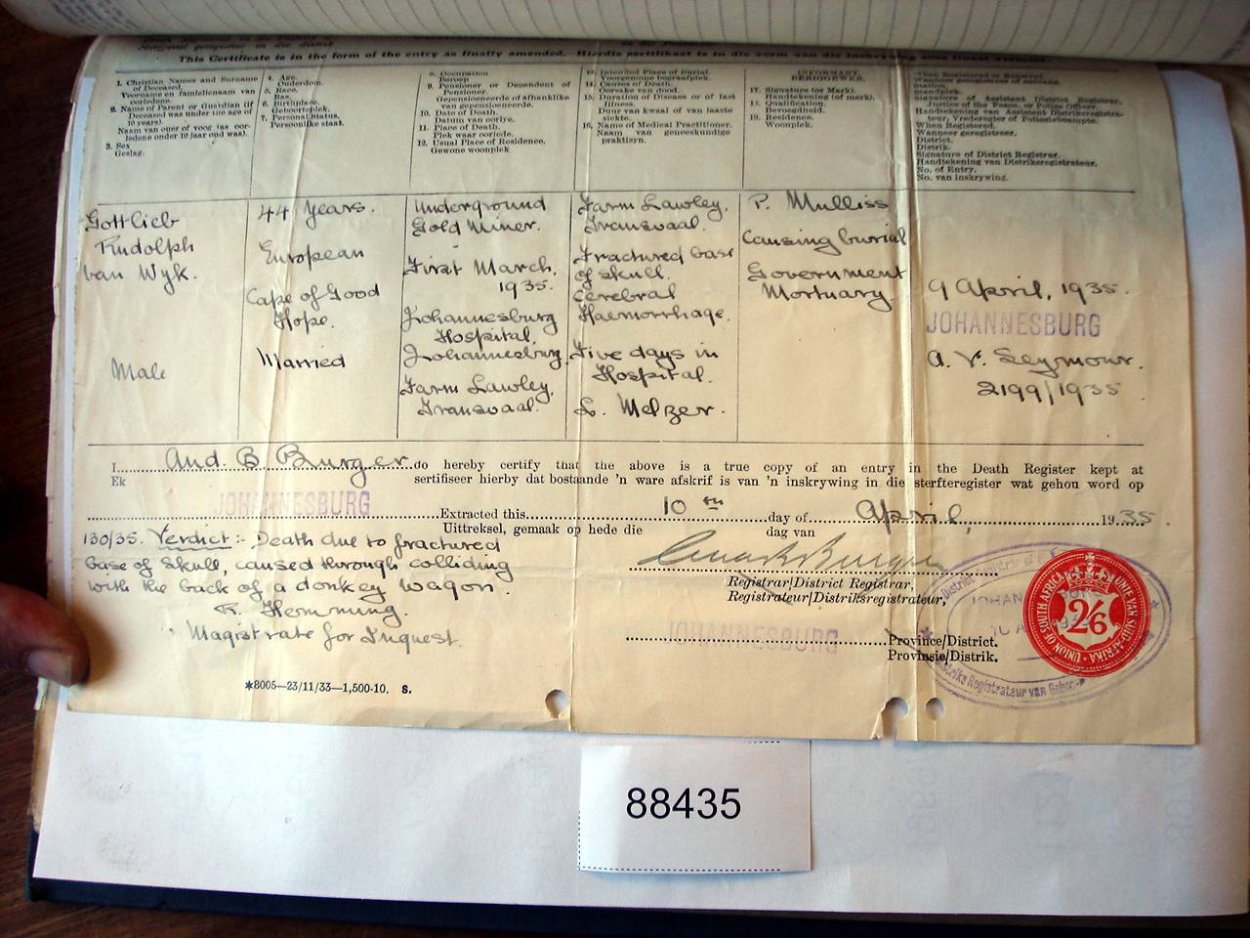 This Certificate is in the form of the entry as finally amended. Hierdie sertifikaat is in die vorm van die inskrywing
1. Christian Names and Surname
of Deceased.
Voorname en familienaam van
oorledene.
2. Name of Parent or Guardian (if
Deceased was under the age of
10 years).
Naam van ouer of voog (as oor-
ledene onder 10 jaar oud was).
3. Sex
Geslag.
4. Age.
Ouderdom.
5. Race.
Ras.
6. Birthplace.
Geboorteplek.
7. Personal Status.
Persoonlike staat.
8. Occupation
Beroep
9. Pensioner or Dependent of
Pensioner.
Gepensioeneerde of afhanklike
van gepensioeneerde.
10. Date of Death.
Datum van oorlye.
11. Place of Death.
Plek waar oorlede.
12. Usual Place of Residence.
Gewone woonplek
13. Intended Place of Burial
Voorgenome begraafplek.
14. Causes of Death.
Oorsake van dood.
15. Duration of Disease or of last
Illness.
Duur van kwaal of van laaste
siekte.
16. Name of Medical Practitioner.
Naam van geneeskundige
praktisyn.
INFORMANT.
17. Signature (or Mark).
Handtekening (of merk).
18. Qualification.
Bevoegdheid.
19. Residence.
Woonplek.
Signature of Assistant District Registrar,
Justice of the Peace, or Police Officer.
Handtekening van Assistent Distriksregistra-
teur, Vrederegter of Polisiebeampte.
When Registered.
Wanneer geregistreer.
District.
Distrik.
Signature of District Registrar.
Handtekening van Distriksregistrateur.
No. of Entry.
No. van inskrywing.
Gottlieb
Rudolph
van Wyk.
Male
44 Years.
European
Cape of Good
Hope.
Married
Underground
Gold Miner.
First March,
1935.
Johannesburg
Hospital,
Johannesburg.
Farm Lawley,
Transvaal.
Farm Lawley,
Transvaal.
Fractured base
of skull.
Cerebral
Haemorrhage.
Five days in
Hospital.
L. Melzer.
P. Mulliss
Causing burial
Government
Mortuary.
9 April, 1935.
JOHANNESBURG
A. V. Seymour.
2199/1935
I And. B. Burger do hereby certify that the above is a true copy of an entry in the Death Register kept at
Ek sertifiseer hierby dat bostaande 'n ware afskrif is van 'n inskrywing in die sterfteregister wat gehou word op
JOHANNESBURG Extracted this 10th day of April, 1935.
Uittreksel, gemaak op hede die dag van
130/35. Verdict:- Death due to fractured
base of skull, caused through colliding
with the back of a donkey wagon.
Hemming.
Magistrate for Inquest.
Registrar/District Registrar,
Registrateur/Distriksregistrateur,
JOHANNESBURG Province/District.
Provinsie/Distrik.
UNION OF SOUTH AFRICA · UNIE VAN SUID-AFRIKA
2/6
*8005—23/11/33—1,500-10. S.
88435